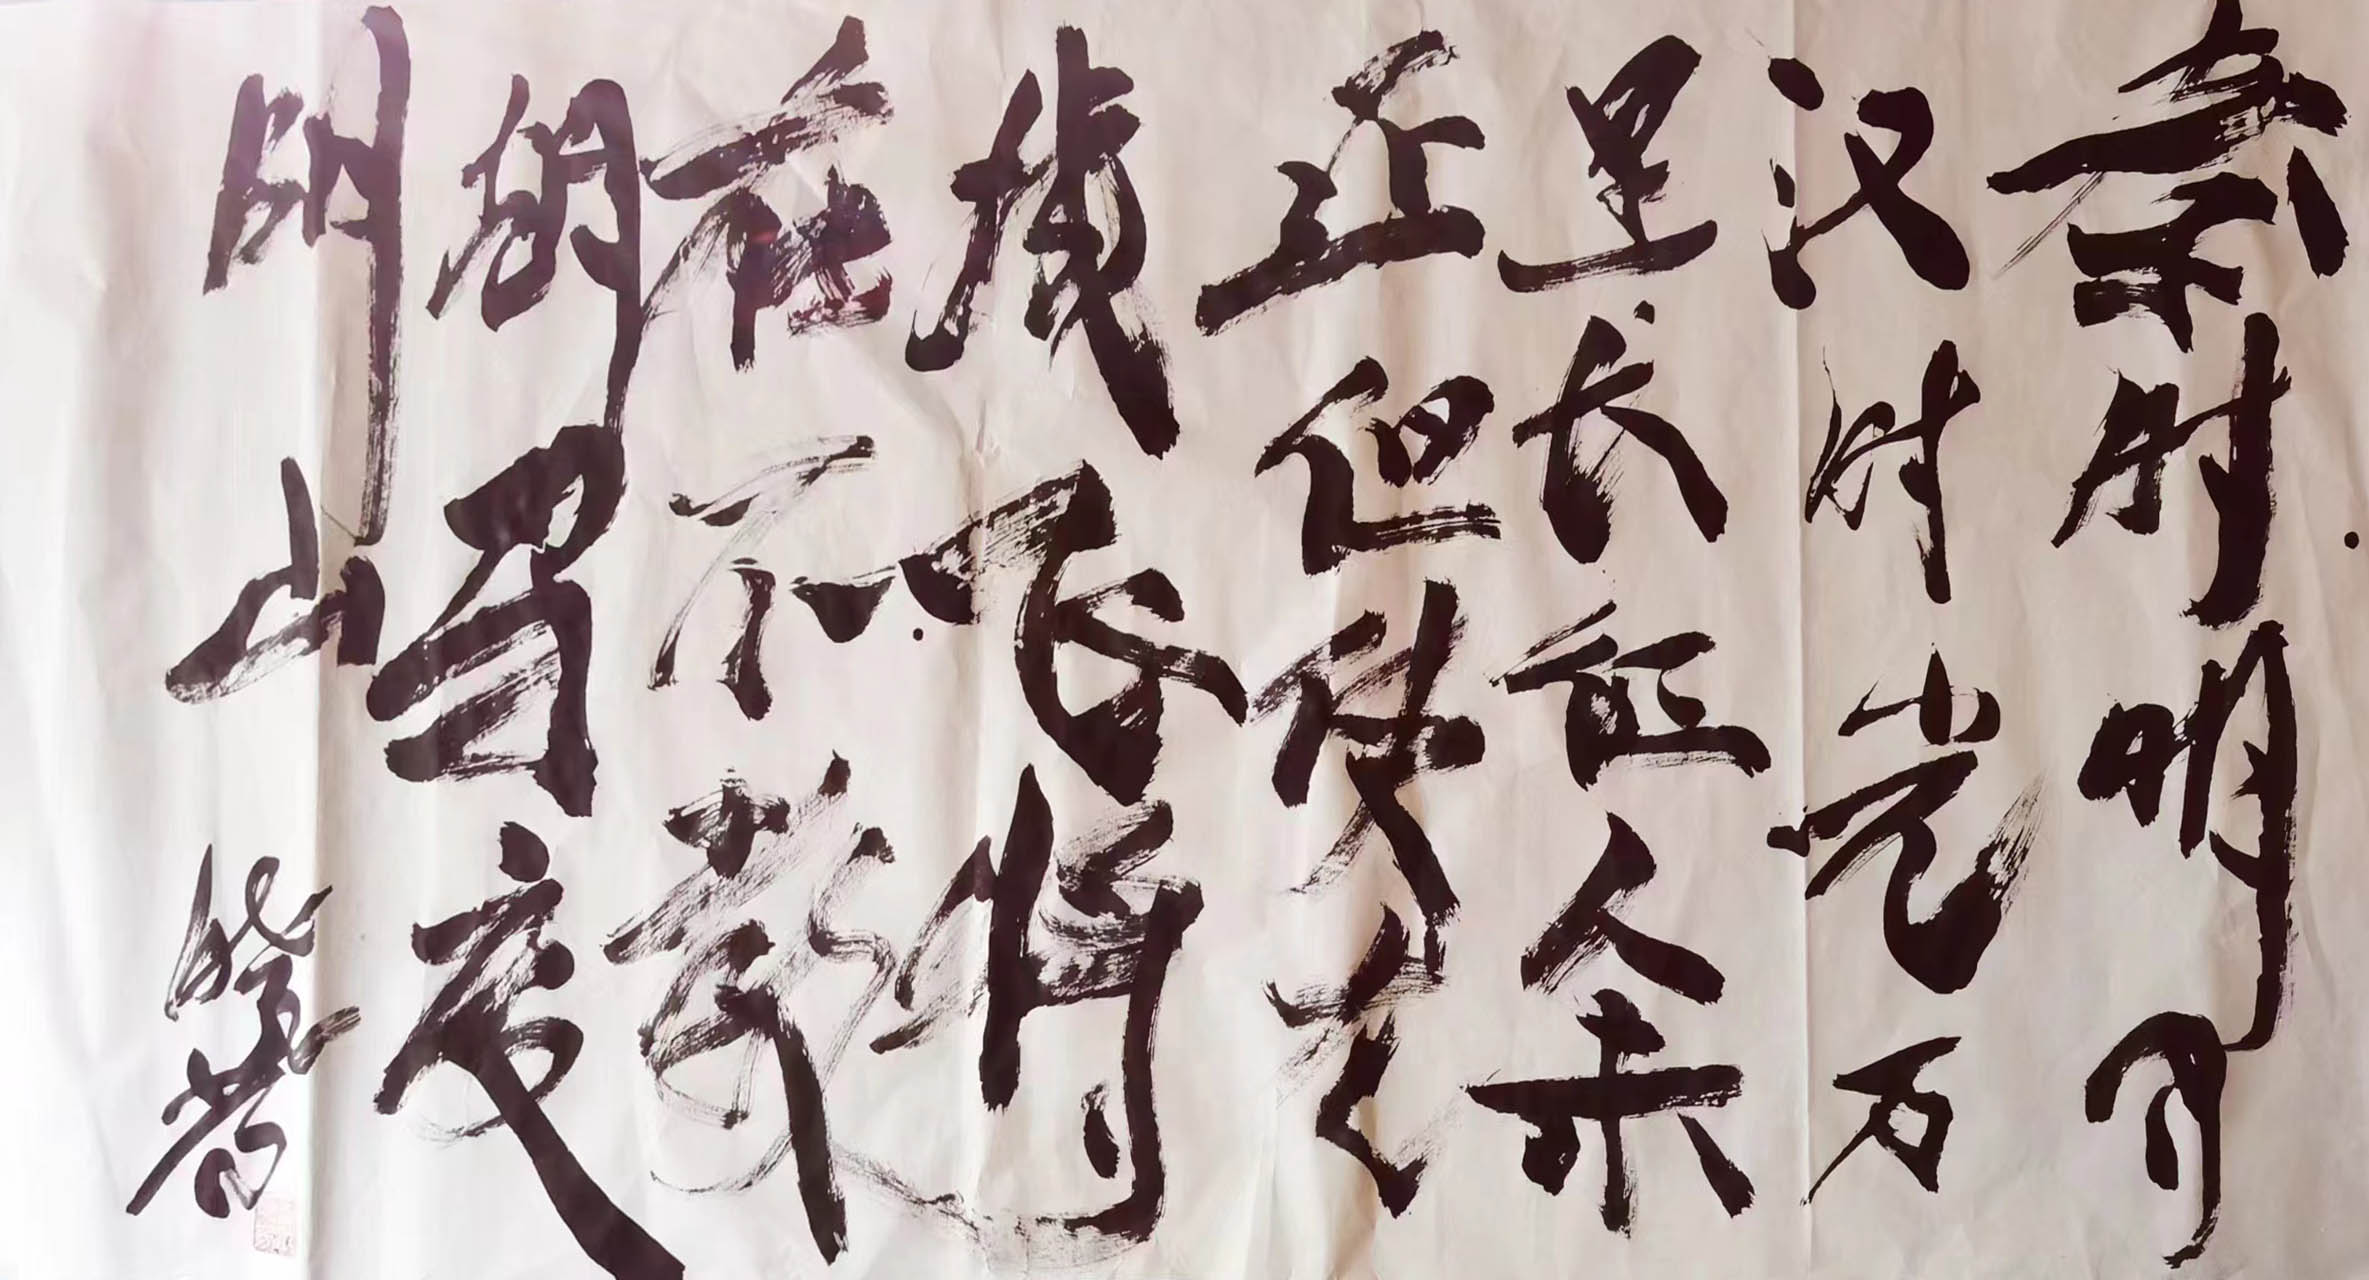 秦时明月
汉时关万
里长征人未
还但使龙
城飞将
在不教
胡马度
阴山